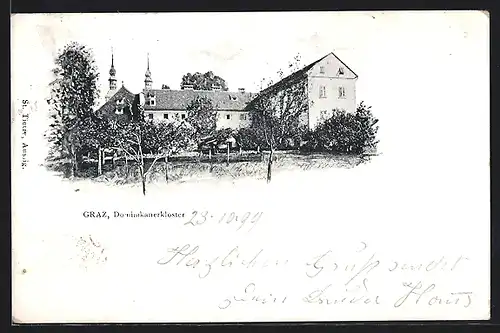 St. Tietze, Aussig.
GRAZ, Dominikanerkloster
23-10 99
Herzlichen Gruß sendet
Dein Bruder Hans